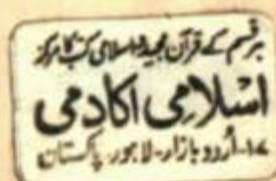 ہر قسم کے قرآن مجید و اسلامی کتب کا مرکز
اسلامی اکادمی
۱۷۔ اُردو بازار۔ لاہور۔ پاکستان